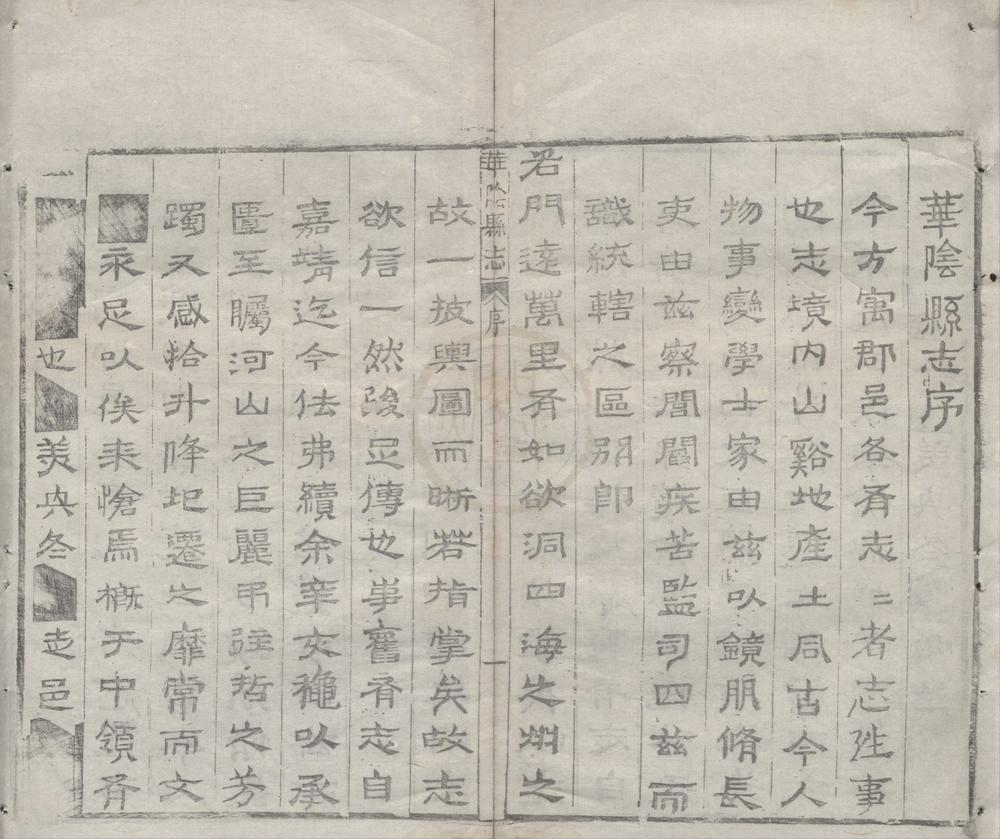 華陰縣志序
今方寓郡邑各有志二者志往事
也志境內山谿地產土風古今人
物事變學士家由茲以鏡朋脩長
吏由茲察閭閻疾苦監司四茲而
識統轄之區別即
君門達萬里有如欲洞四海之州之
華陰縣志 序 一
故一披輿圖而晰若指掌矣故志
欲信一然後足傳也事舊有志自
嘉靖迄今佉弗續余以承
匱至矚河山之巨麗弔往哲之芳
躅又感拾升降圮遷之靡常而文
永足以俟来愴焉槪于中領有
也美央冬走邑